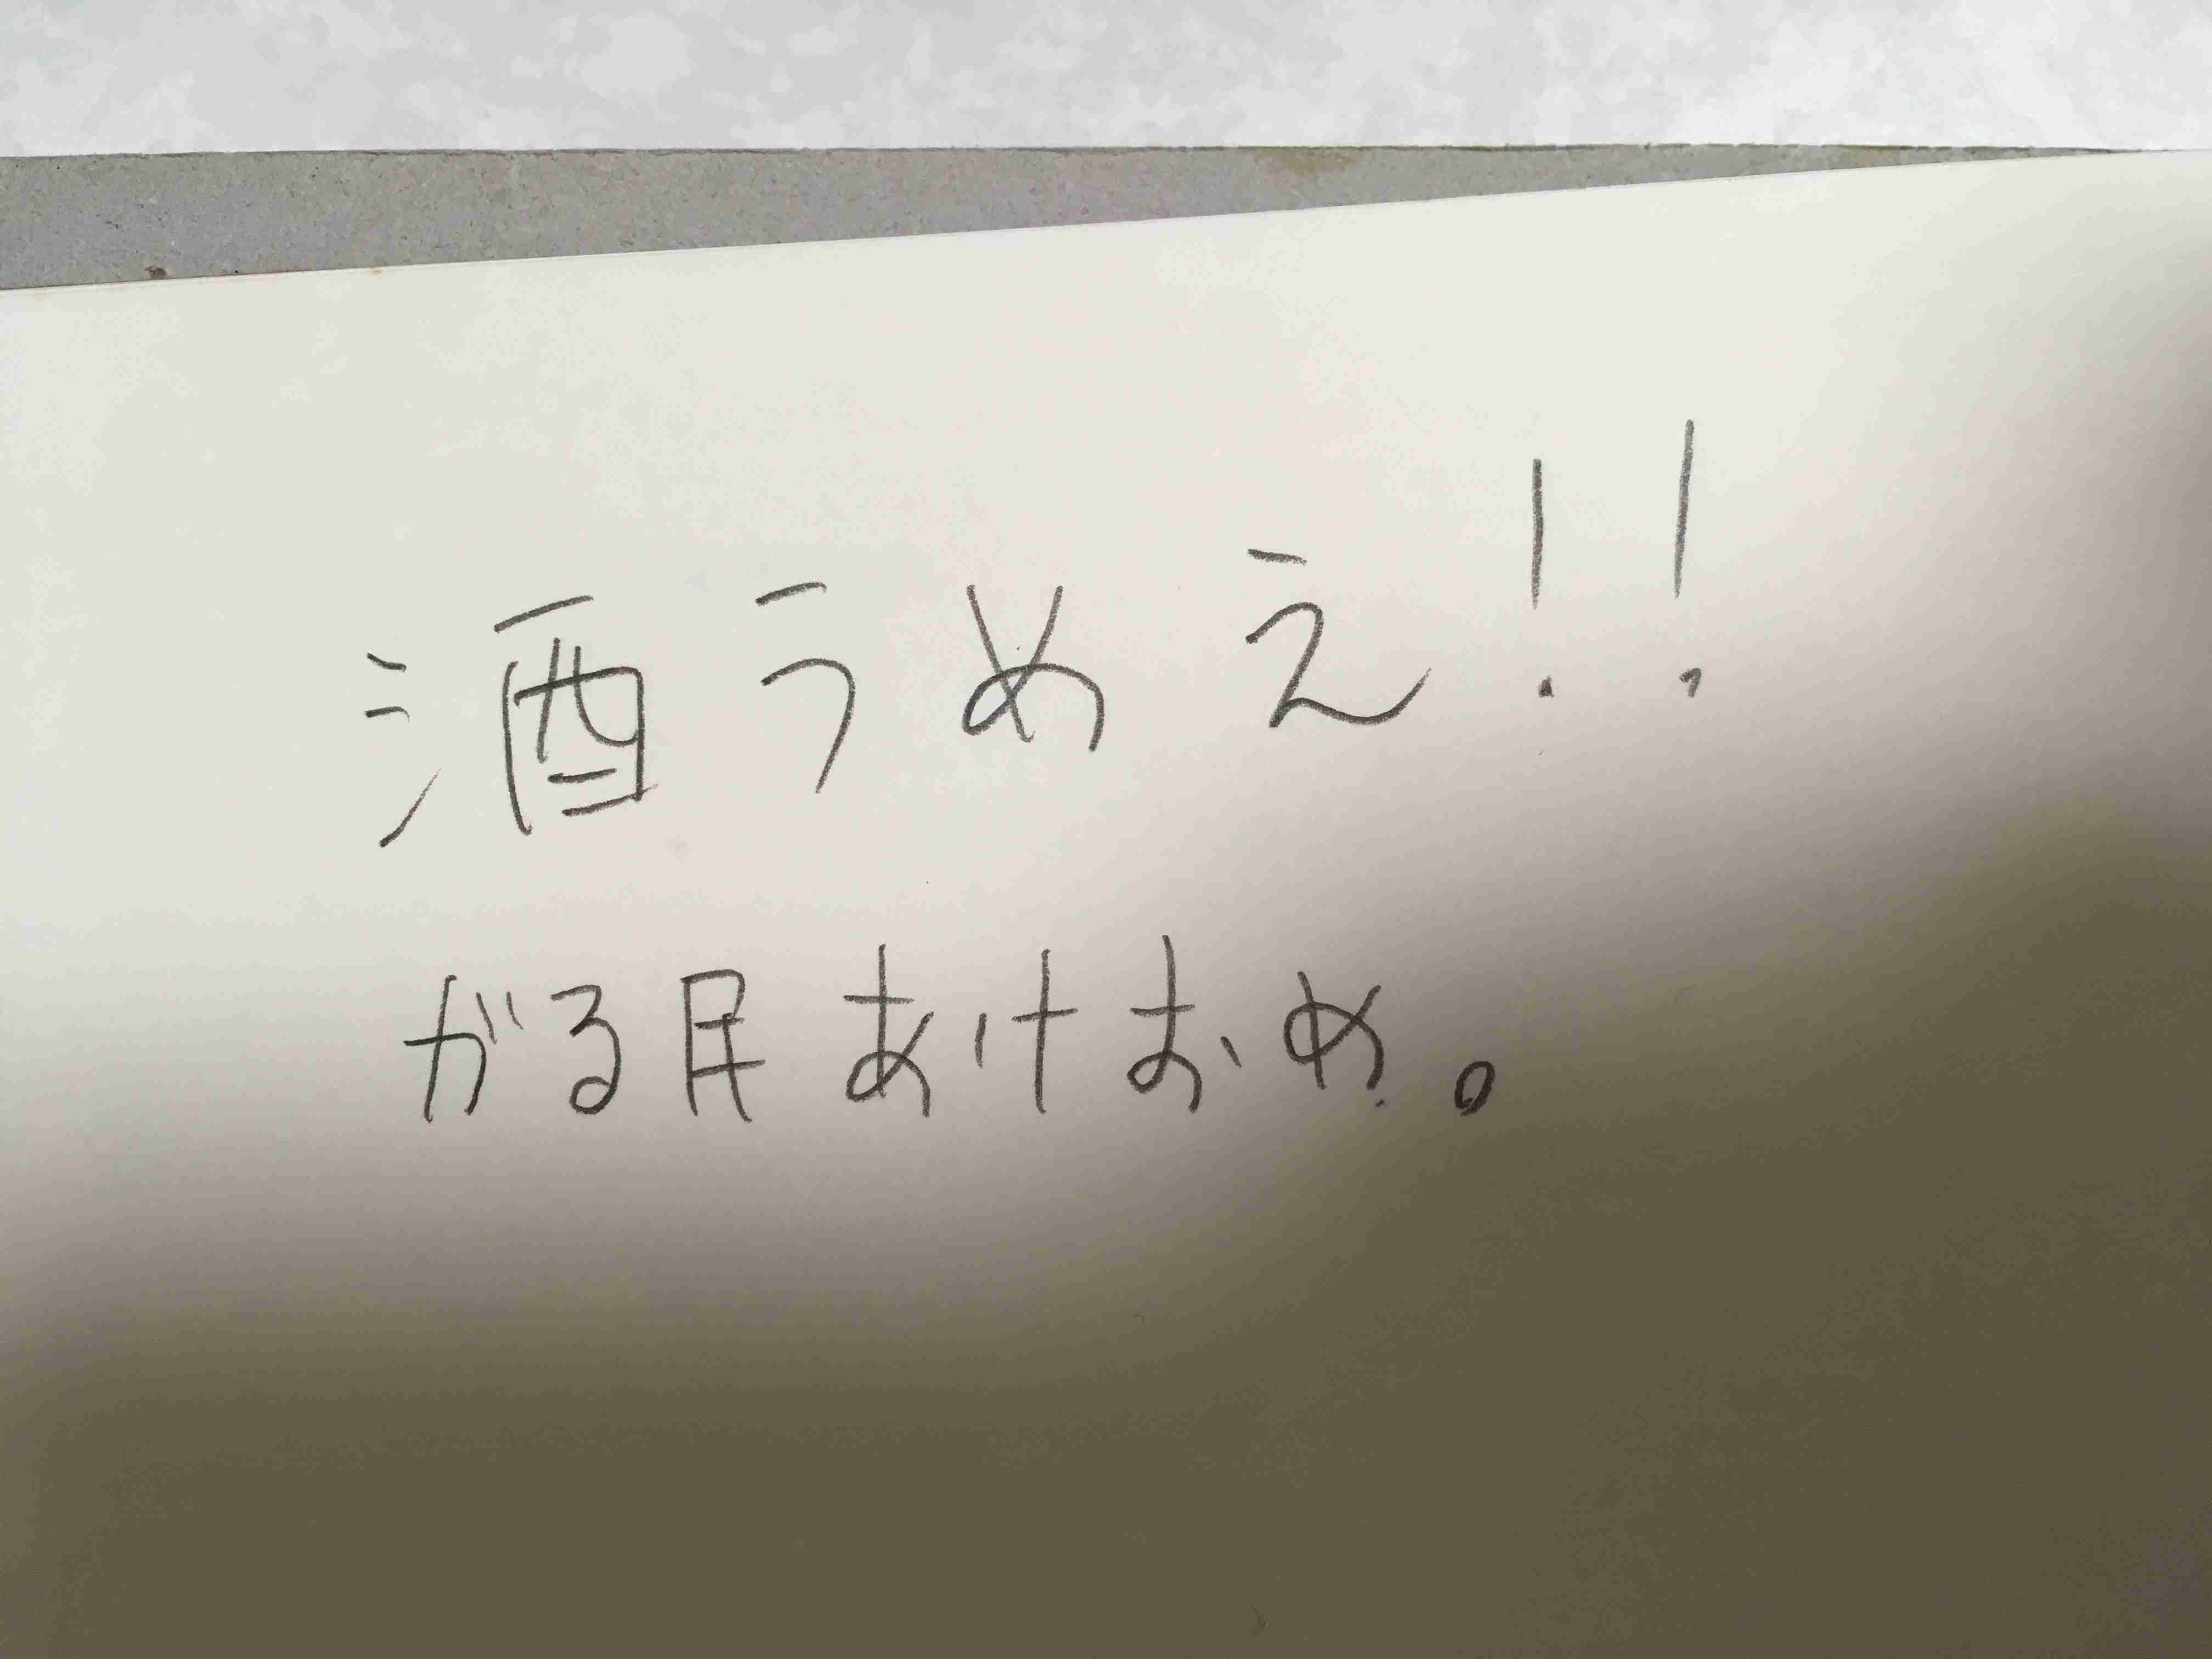 酒うめえ!!
がる民あけおめ。